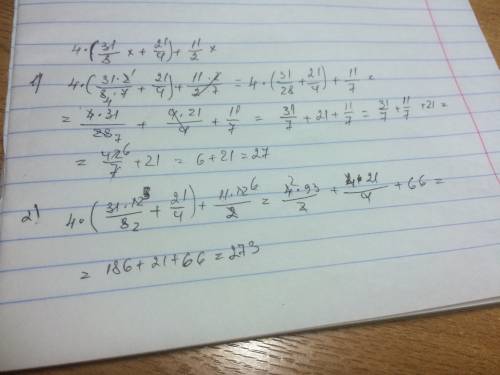 4·(31/8 x + 21/4) + 11/2 x
1) 4·(31·2/8·7 + 21/4) + 11·2/2·7 = 4·(31/28 + 21/4) + 11/7 =
= 4·31/28 7 + 4·21/4 + 11/7 = 31/7 + 21 + 11/7 = 31/7 + 11/7 + 21 =
= 42 6/7 + 21 = 6 + 21 = 27
2) 4·(31·12 3/8 2 + 21/4) + 11·12 6/2 = 4 2·93/2 + 4·21/4 + 66 =
= 186 + 21 + 66 = 273